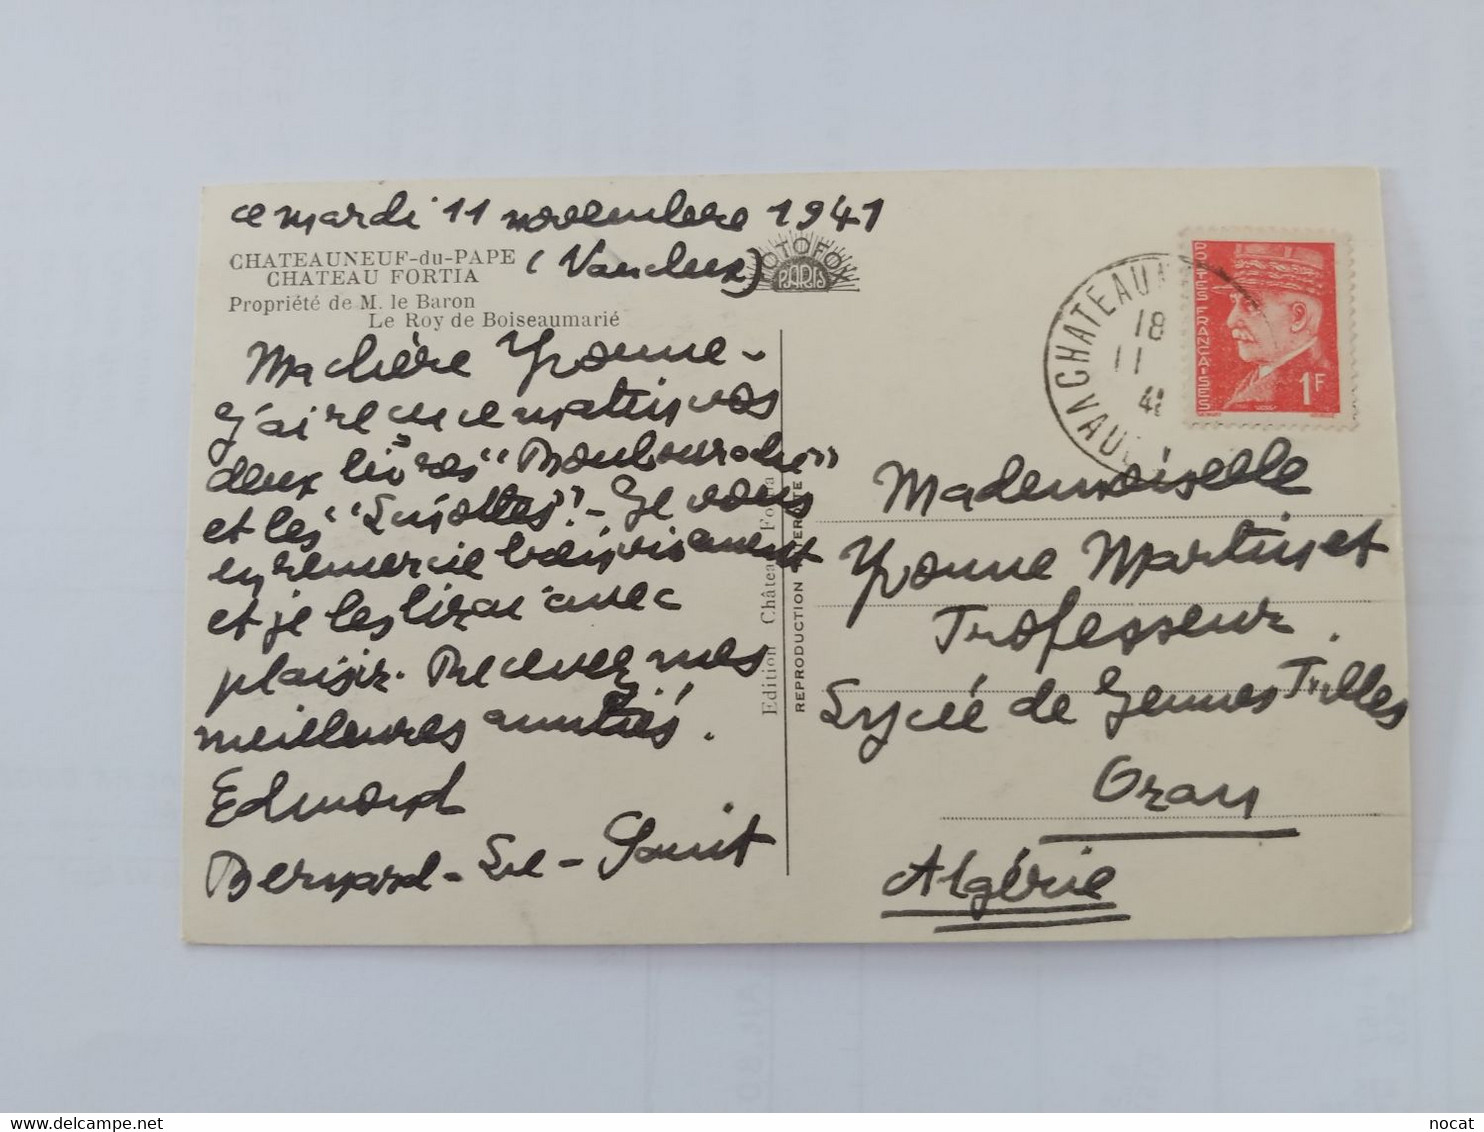 ce mardi 11 novembre 1941
CHATEAUNEUF-du-PAPE
(Vaucluse)
CHATEAU FORTIA
Propriété de M. le Baron
Le Roy de Boiseaumarié
Ma chère Yvonne -
j'ai reçu ce matin vos
deux livres "Boubouroche"
et les "Linottes". - Je vous
en remercie bien vivement
et je les lirai avec
plaisir. Recevez mes
meilleures amitiés.
Edmond
Bernard-Le-Saint
Edition Château Fortia
REPRODUCTION INTERDITE
FOTOFOX
PARIS
CHATEAU
18
11
VAU
POSTES FRANÇAISES
1F
Mademoiselle
Yvonne Martinet
Professeur.
Lycée de Jeunes Filles
Oran
Algérie
www.delcampe.net
nocat